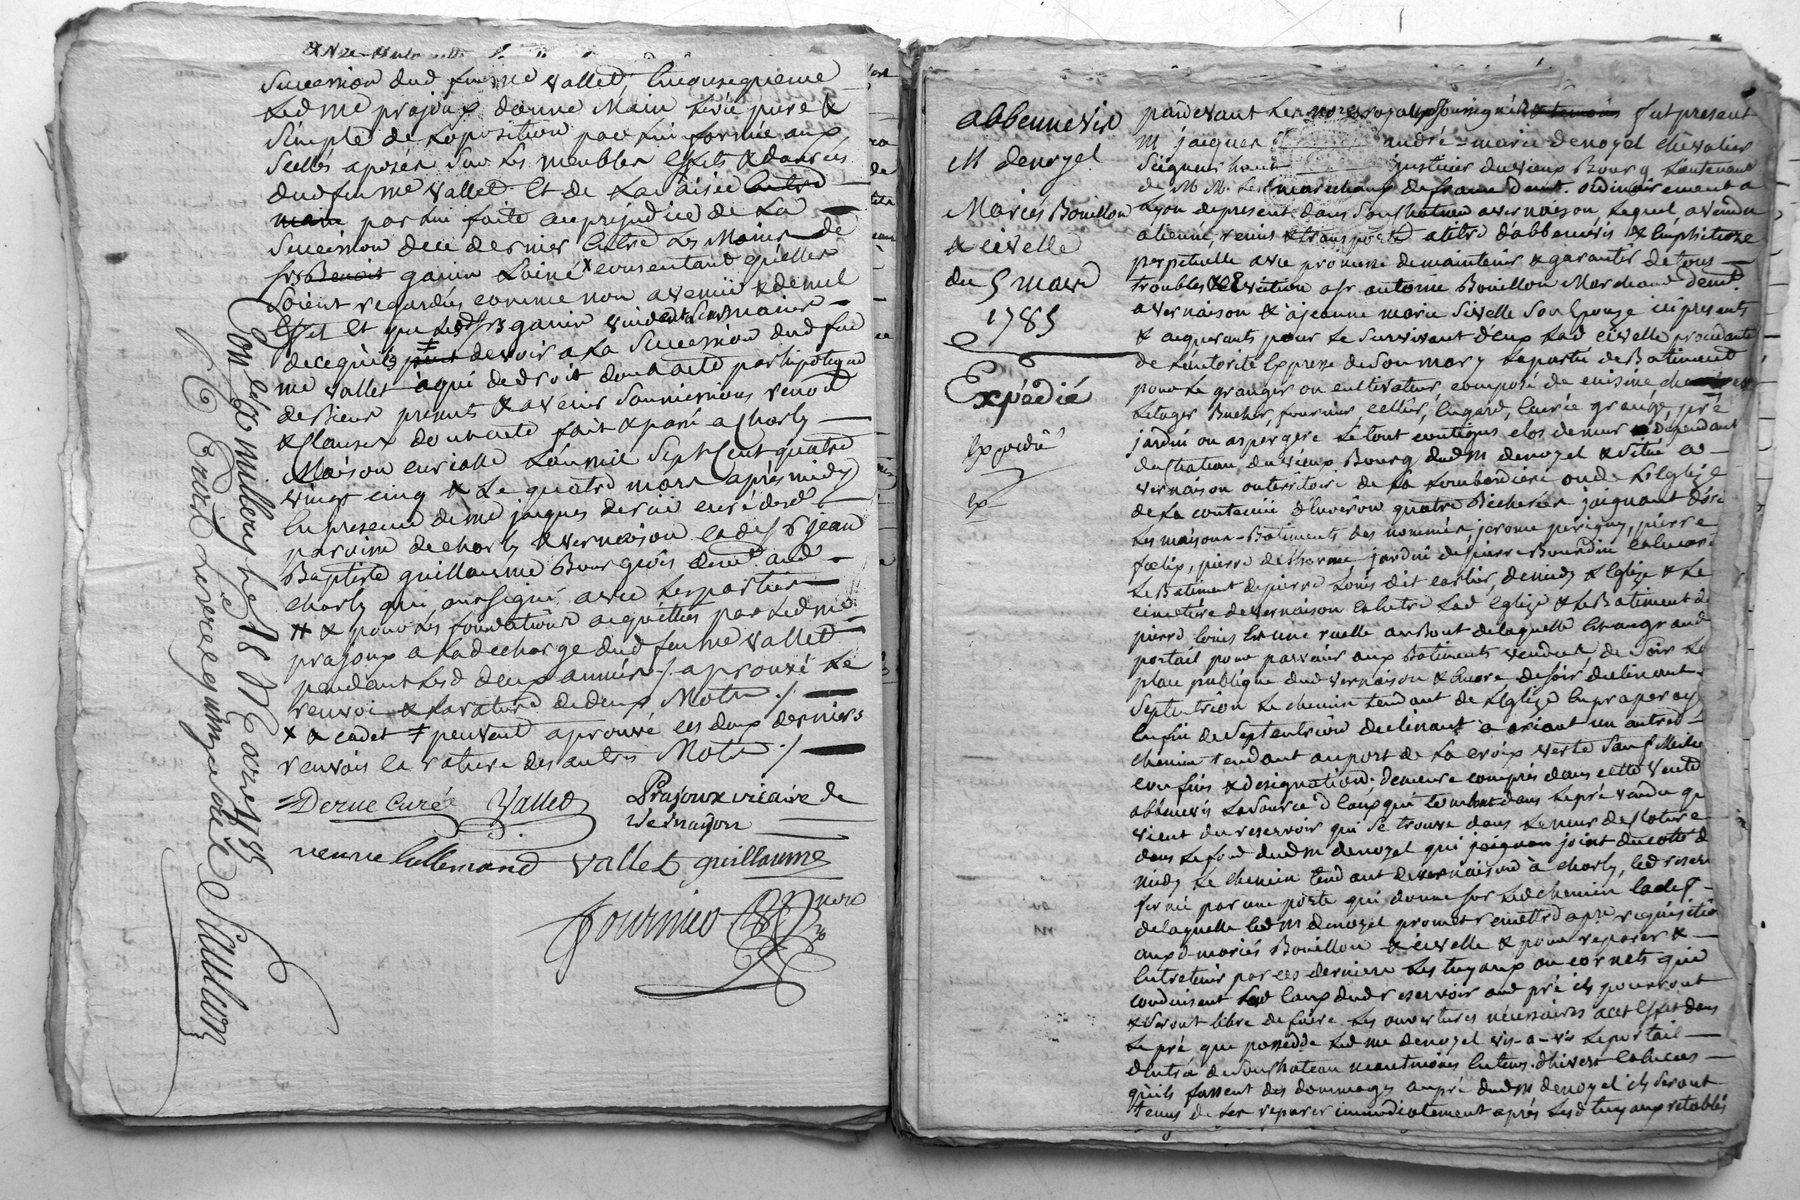 succession dud feu me vallet, En consequence
Led me prajoux donne Main Levée pure &
simple de Loposition par lui formée aux
scellés aposés sur Les meubles effets & danrées
dud feu me vallet Et de La saisie Entre
mains par lui faite au prejudice de La
succession de ce dernier Entre Les Mains de
Srs Benoit ganin Lainé x consentant quelles
soient regardées comme non avenues & de nul
Effet Et que Lesd Srs ganin vuident Leurs mains
de ce qu'ils devoir a La succession dud feu
me vallet a qui de droit dont acte par hipoteque
de Biens presents & avenir soumissions renon
& Clauses dont acte fait & passé a Charly
Maison curialle L'an mil sept Cent quatre
vingt cinq & Le quatre mars après midy
En presence de me jaques derue curé de lad
paroisse de charly & vernaison Et de Sr jean
Baptiste guillaume Bourgeois demt aud
charly qui ont signé avec Les parties
# & pour Les fondations acquittées par Led me
prajoux a La decharge dud feu me vallet
pendant Lesd deux années ./. aprouvé Le
renvoi & La rature de deux Mots ./.
x & cadet ‡ peuvent aprouvé ces deux derniers
renvois et rature des autres Mots ./.
Derue Curé Vallet Prajoux vicaire de
vernaison
veuve Lallemand Vallet guillaume
Fournier nore
Con lé a millery le 18 Mars 1785
Reçu Saulon
abbennevis
M denoyel
Mariés Bouillon
& civelle
du 5 mars
1785
Expédié
Expedié
Ex
pardevant Les nores royaux soussignés & temoins fut present
m jaques andré-marie denoyel chevalier
seigneur haut justicier du vieux Bourg Lieutenant
de M M. Les marechaux de france demt ordinairement a
Lyon de present dans son chateau a vernaison, Lequel a vendu
aliené, remis & transporté a titre d'abbenevis & Emphiteose
perpetuelle avec promesse de maintenir & garantir de tous
troubles & Eviction a Sr antoine Bouillon Marchand demt
a vernaison & a jeanne marie Sivelle son Epouse ici presents
& acquerants pour Le survivant d'eux Lad civelle procedante
de L'autorité Expresse de son mary La partie de Batiment
pour Le granger ou cultivateur, composé de cuisine
Letager Bucher, fournier, cellier, Engard, Ecurie grange, pré
jardin ou aspergere Le tout contigus clos de mur & dependant
du chateau du vieux Bourg dud m denoyel & situé a
vernaison au territoire de La Lombardiere ou de L'Eglise
de La contenue d'Environ quatre Bicherées joignant
Les maisons-Batiments des nommés, jerome perigny, pierre
foelix, pierre delhorme, jardin de pierre Bourdin Encore
Le Batiment de pierre Louis dit carlier, de midy L'Eglise & Le
cimetiere de vernaison Entre Lad Eglise & Le Batiment de
pierre Louis Est une ruelle au Bout de laquelle Est un grand
portail pour parvenir aux Batiments vendus de soir La
place publique dud vernaison & Encore de soir declinant
Septentrion Le chemin tendant de L'Eglise
Enfin de septentrion declinant a orient un autre
chemin tendant au port de La croix verte sauf meilleurs
confins & designation: demeure compris dans cette vente
abbenevis La source d'Eaux qui tombent dans Le pré vendu qui
vient du reservoir qui se trouve dans Le mur de cloture
dans Le fond dud m denoyel qui joignant du cotté de
midy Le chemin tendant de vernaison à charly, led reservoir
fermé par une porte qui donne sur Led chemin La clef
de laquelle led M denoyel promet remettre a pre requisition
auxd mariés Bouillon & civelle & pour reparer &
Entretenir par ces derniers Les tuyaux ou cornets qui
conduisent Lesd Eaux dud reservoir aud pré ils pourront
& seront libre de faire Les ouvertures nécessaires a cet Effet dans
Le pré que possède Led me denoyel vis-a-vis Le portail
d'entrée de son chateau neantmoins En tems d'hivert
qu'ils fassent des dommages au pré dud m denoyel ils seront
tenus de Les reparer immediatement après Lesd tuyaux retablis